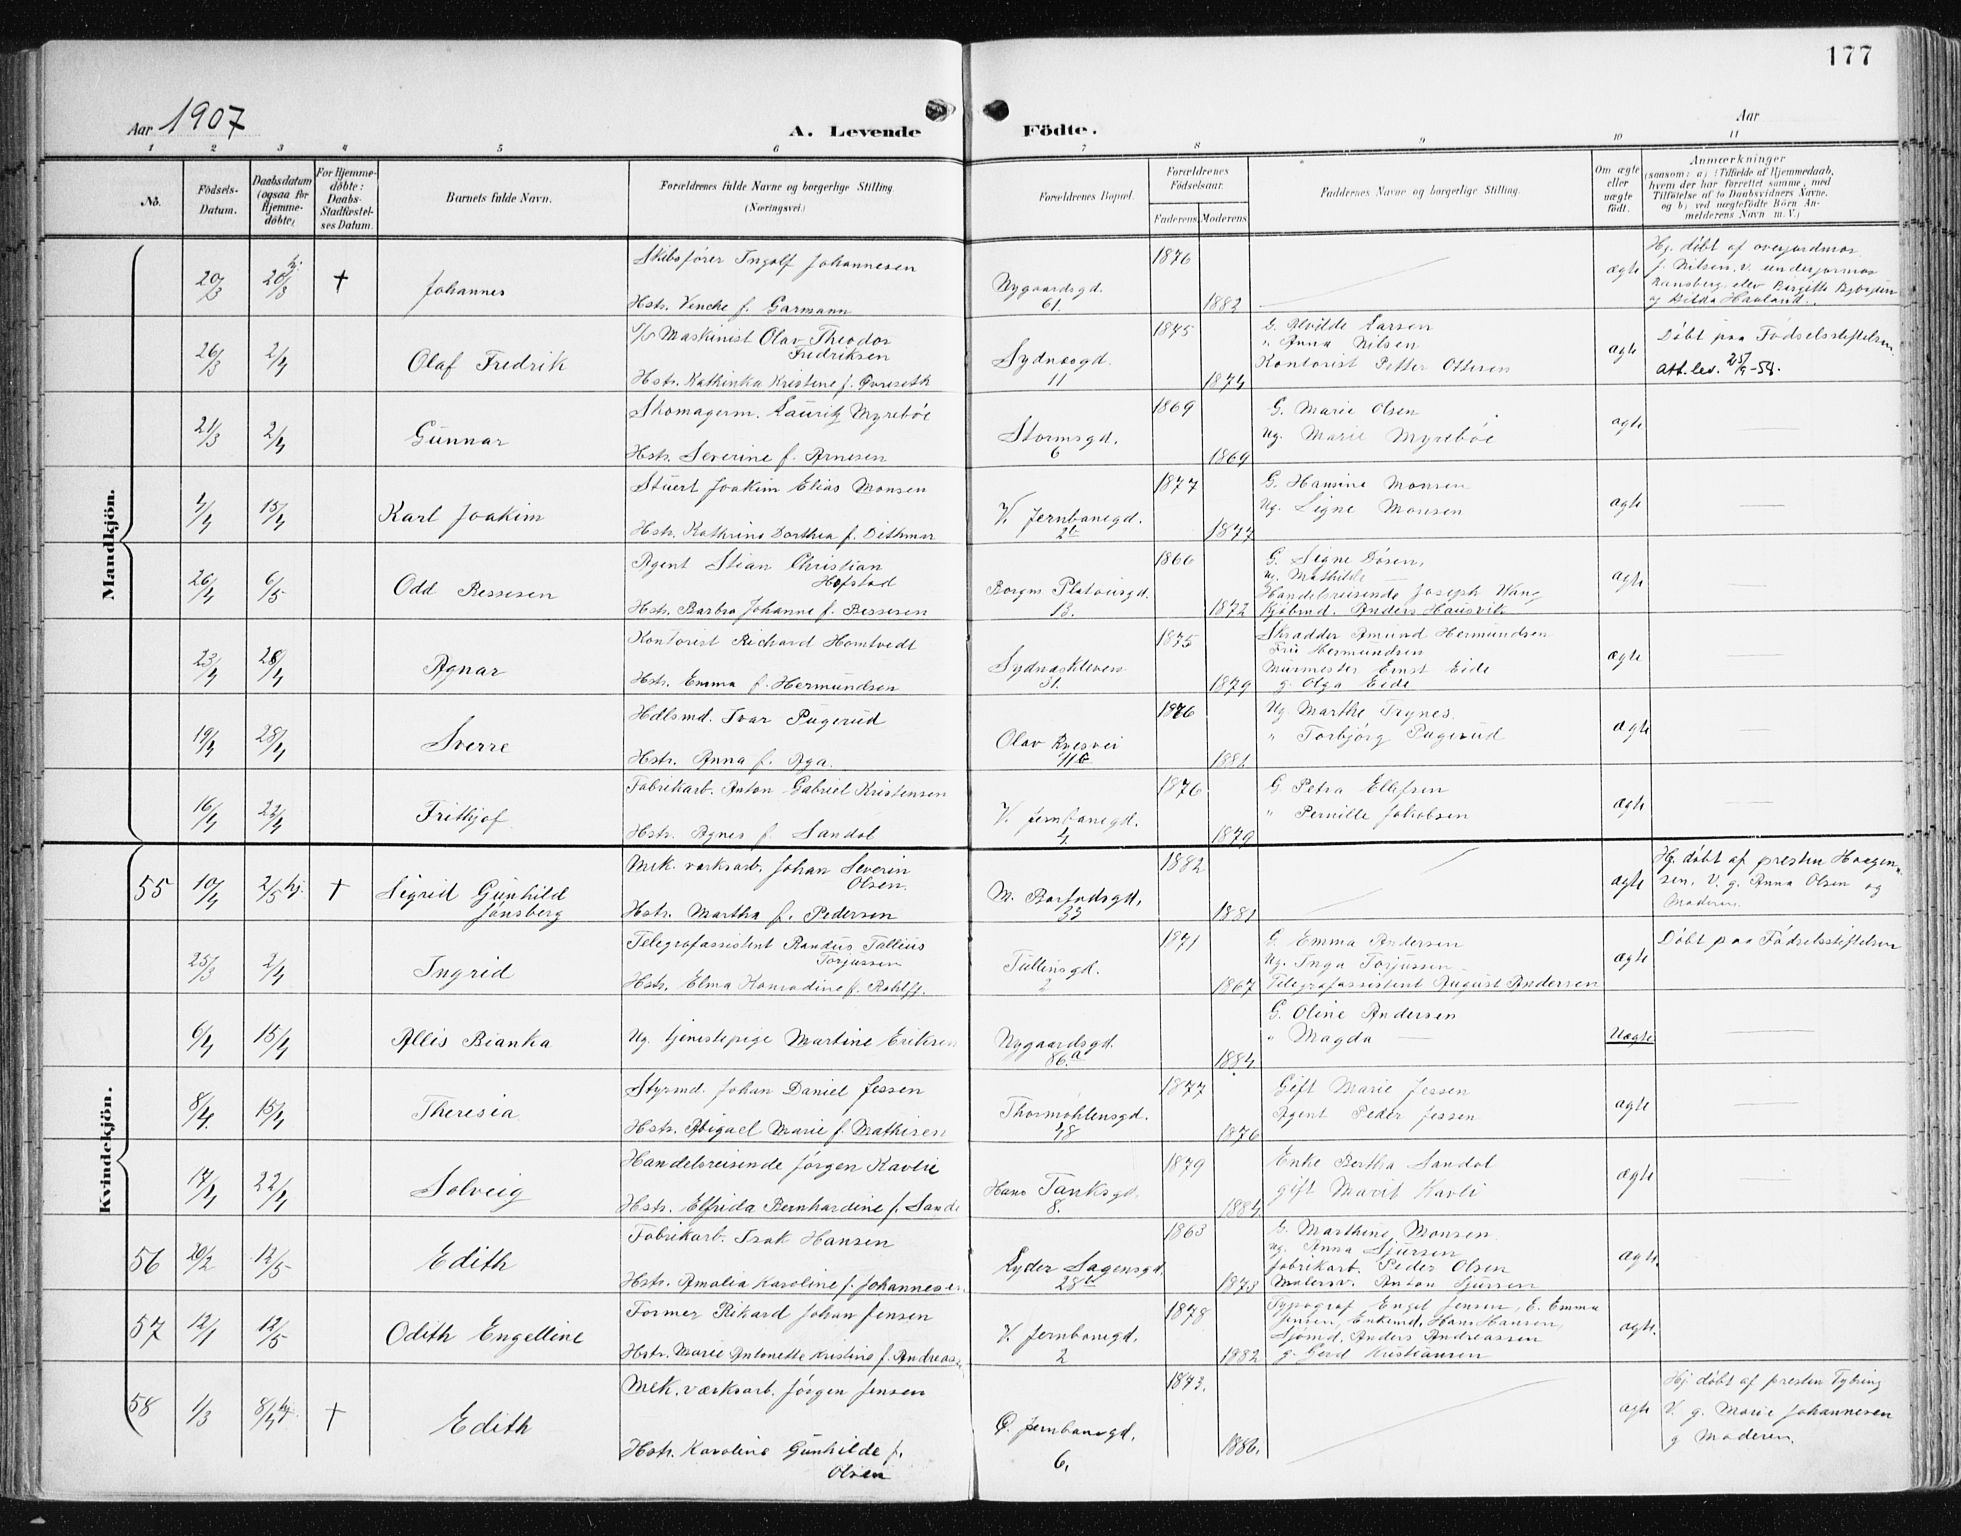 177
Aar 1907
A. Levende Födte.
Aar
1 2 3 4 5 6 7 8 9 10 11
No.
Födsels-Datum.
Daabsdatum (ogsaa for Hjemme-döbte)
For Hjemme-döbte: Daabs-Stadfæstel-ses Datum.
Barnets fulde Navn.
Forældrenes fulde Navne og borgerlige Stilling. (Næringsvei.)
Forældrenes Bopæl.
Forældrenes Födselsaar.
Faderens Moderens
Faddernes Navne og borgerlige Stilling.
Om ægte eller uægte födt.
Anmærkninger
(saasom: a) i Tilfælde af Hjemmedaab,
hvem der har forrettet samme, med
Tilföielse af to Daabsvidners Navne.
og b) ved uægtefödte Börn An-
melderens Navn m. V.)
Mandkjön.
20/3 20/3 hj. † Johannes
Skibsfører Ingolf Johannesen
Hstr. Vencke f. Garmann
Nygaardsgd. 61.
1876 1882
ægte
Hj. døbt af overjordmor
f. Nilsen. v. underjormor
elev Bergitte
og Hilda Havland.
26/3 2/4 Olaf Fredrik
Maskinist Olav Theodor
Fredriksen
Hstr. Kathinka Kristine f. Øvreseth
Sydnesgd. 11
1875 1874
G. Alvilde Larsen
" Anna Nilsen
Kontorist Petter Ottesen
ægte
Døbt paa Fødselsstiftelsen
Att. lev. 25/9-54.
21/3 2/4 Gunnar
Skomagerm. Lauritz Myrebøe
Hstr. Severine f. Arnesen
Stormsgd. 6
1869 1869
G. Marie Olsen
Ug. Marie Myrebøe
ægte
1/4 15/4 Karl Joakim
Stuert Joakim Elias Monsen
Hstr. Kathrine Dorthea f. Dithmar
V. Jernbanegd. 26
1877 1877
G. Hansine Monsen
Ug. Signe Monsen
ægte
26/4 6/5 Odd Bessesen
Agent Stian Christian
Hofstad
Hstr. Barbra Johanne f. Bessesen
Borgm Platousgd. 13.
1866 1872
G. Signe Døsen,
ug. Mathilde —
Handelsreisende Joseph Wang
Kjøbmd. Anders Hausvik
ægte
23/4 28/4 Agnar
Kontorist Richard Homtvedt
Hstr. Emma f. Hermundsen
Sydneskleven 31.
1875 1879
Skrædder Amund Hermundsen
Fru Hermundsen
Murmester Ernst Eide
g. Olga Eide
ægte
19/4 28/4 Sverre
Hdlsmd. Ivar Pugerud
Hstr. Anna f. Aga.
Olav Kyresvei
1876 1881
Ug. Marthe Trynes.
" Torbjörg Pugerud
ægte
16/4 22/4 Frithjof
Fabrikarb. Anton Gabriel Kristensen
Hstr. Agnes f. Sandal
V. Jernbanegd. 4.
1876 1879
G. Petra Ellefsen
" Pernille Jakobsen
ægte
Kvindekjön.
55 10/4 2/5 hj. † Sigrid Gunhild
Jansberg
Mek. værksarb. Johan Severin
Olsen.
Hstr. Martha f. Pedersen
M. Barfodsgd. 33
1882 1881
ægte
Hj. døbt af presten Haagen-
sen, V. g. Anna Olsen og
Moderen.
25/3 2/4 Ingrid
Telegrafassistent Randus Tallius
Torjussen
Hstr. Elma Konradine f. Rohlff.
Tullinsgd. 2
1871 1867
G. Emma Andersen
Ug. Inga Torjussen
Telegrafassistent August Andersen
ægte
Døbt paa Fødselsstiftelsen
6/4 15/4 Allis Bianka
Ug. tjenestepige Martine Eriksen
Nygaardsgd. 86a
1884
G. Oline Andersen
" Magda —
Uægte
8/4 15/4 Theresia
Styrmd. Johan Daniel Jessen
Hstr. Abigael Marie f. Mathisen
Thormøhlensgd. 48
1877 1876
Gift Marie Jessen
Agent Peder Jessen
ægte
17/4 22/4 Solveig
Handelsreisende Jørgen Kavlie
Hstr. Elfrida Bernhardine f. Sande
Hans Tanksgd. 8.
1879 1884
Enke Bertha Sandal
gift Mavit Kavli
ægte
56 20/2 12/5 Edith
Fabrikarb. Isak Hansen
Hstr. Amalia Karoline f. Johannesen
Lyder Sagensgd. 28b
1863 1873
G. Marthine Monsen
ug. Anna Sjursen
fabrikarb. Peder Olsen
Malersv. Anton Sjursen
ægte.
57 12/1 12/5 Odith Engelline
Former Rikard Johan Jensen
Hstr. Marie Antonette Kristine f. Andreas
V. Jernbanegd. 2
1878 1882
Typograf Engel Jensen, E. Emma
Jensen, Enkemd. Hans Hansen,
Sjømd. Anders Andreassen
g. Gerd Kristiansen
ægte.
58 1/3 8/4 hj. † Edith
Mek. værksarb. Jørgen Jensen
Hstr. Karoline Gunhilde f.
Olsen
Ø. Jernbanegd. 6.
1873. 1886.
ægte
Hj. døbt af presten Tybring
V. g. Marie Johannesen
g Moderen.